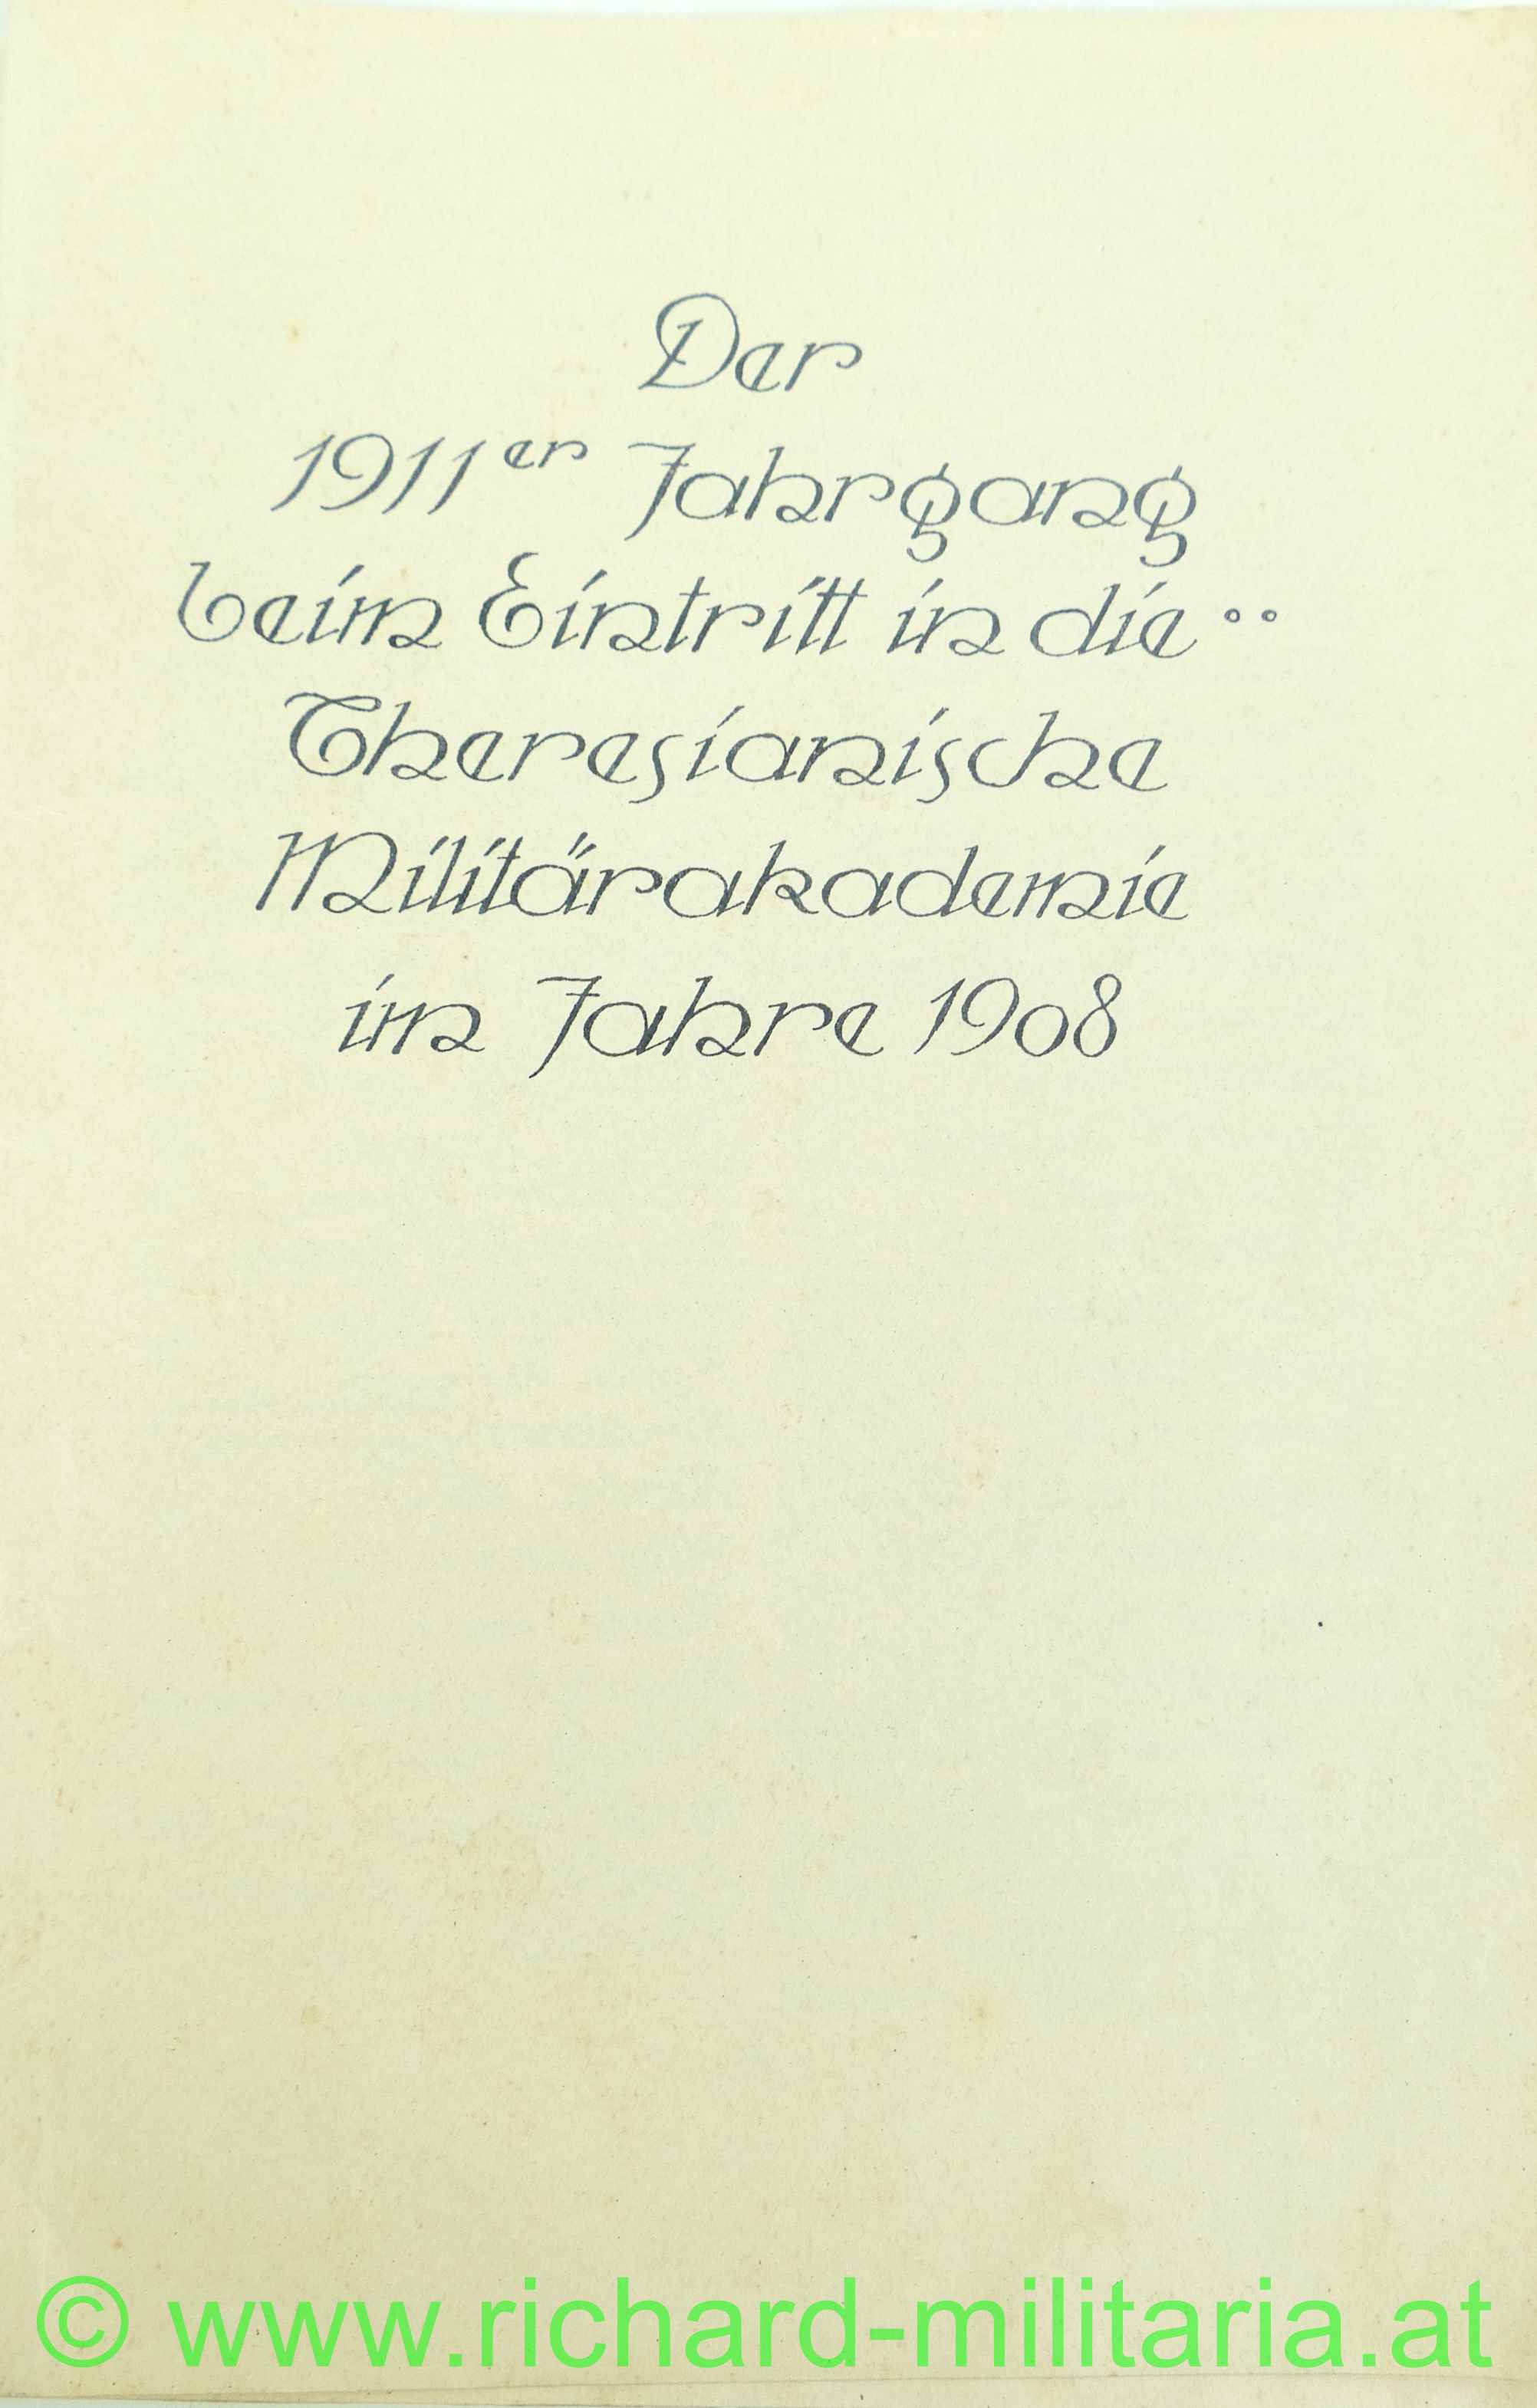 Der
1911er Jahrgang
beim Eintritt in die
Theresianische
Militärakademie
im Jahre 1908
© www.richard-militaria.at